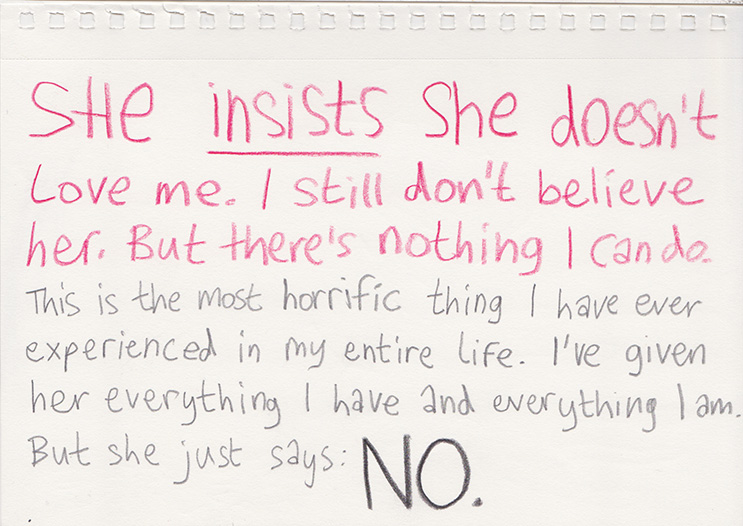 SHe insists She doesn't
Love me. I still don't believe
her. But there's nothing I can do.
This is the most horrific thing I have ever
experienced in my entire life. I've given
her everything I have and everything I am.
But she just says: NO.